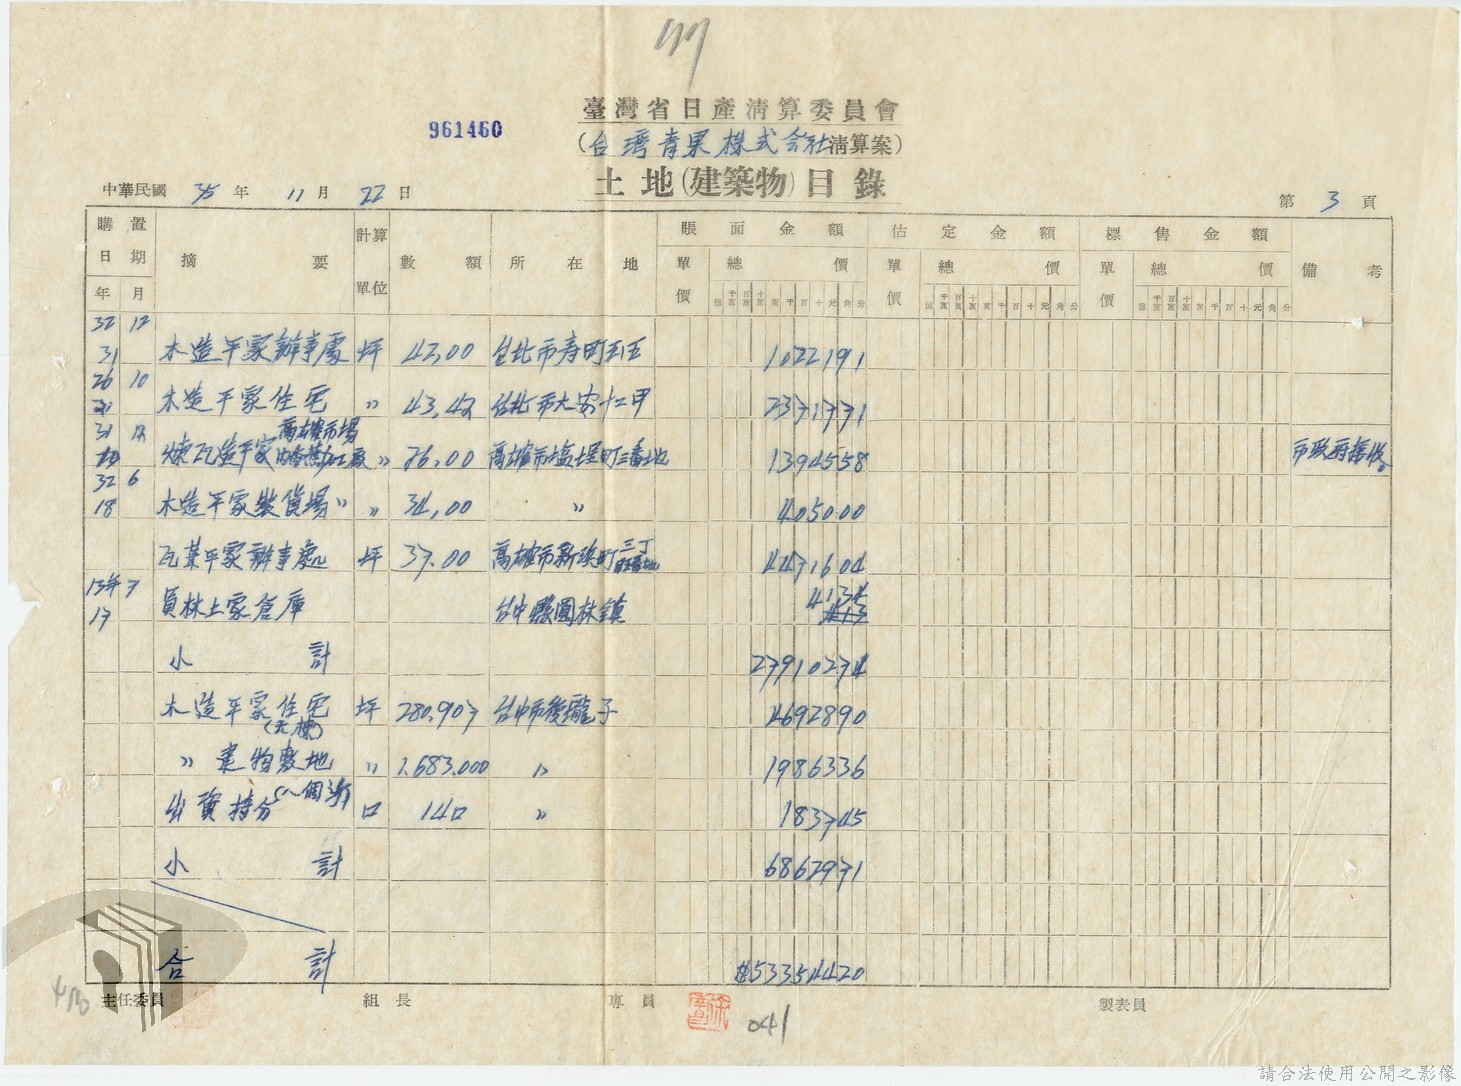 47
臺灣省日產清算委員會
961460
(台灣青果株式会社清算案)
土地(建築物)目錄
中華民國 35 年 11 月 22 日
第 3 頁
購置日期 年 月 摘要 計算單位 數額 所在地 賬面金額 單價 總價 估定金額 單價 總價 標售金額 單價 總價 備考
億 千萬 百萬 十萬 萬 千 百 十 元 角 分 億 千萬 百萬 十萬 萬 千 百 十 元 角 分 億 千萬 百萬 十萬 萬 千 百 十 元 角 分
32 12
31 木造平家辦事處 坪 42,00 台北市寿町五 1022191
26 10
木造平家住宅 〃 43,42 台北市大安十二甲 2371771
31
煉瓦造平家 高雄市場内香蕉加工廠 〃 76,00 高雄市塩埕町三番地 1394558 市政府接收。
32 6
18 木造平家裝貨場〃 〃 34,00 〃 405000
瓦葺平家辦事處 坪 37.00 高雄市新浜町三丁 4471604
13年7
17 員林土家倉庫 台中縣員林鎮 4134
小計 27910274
木造平家住宅 坪 280,907 台中市後壠子 4692890
〃 建物敷地 〃 1.683.000 〃 1986336
出資持分 口 14口 〃 183745
小計 6862971
合計 $53354420
主任委員 組長 專員 製表員
041
請合法使用公開之影像